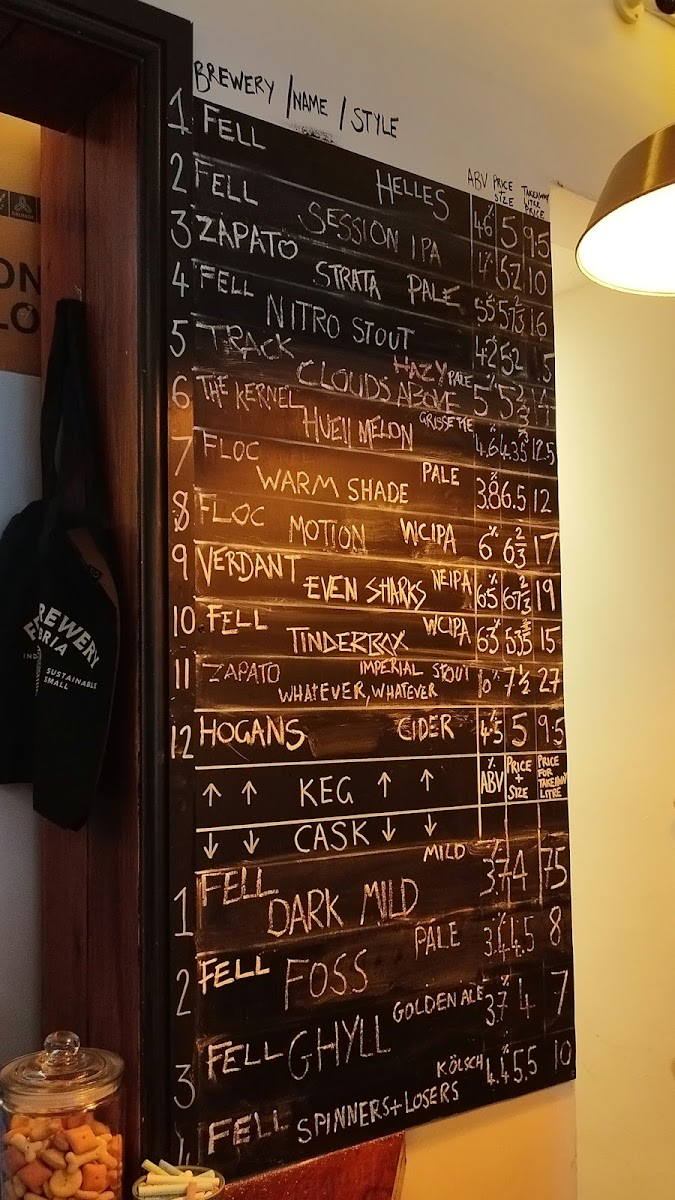 BREWERY / NAME / STYLE
ABV PRICE + SIZE TAKEAWAY LITRE PRICE
1 FELL HELLES 4.6% 5 9.5
2 FELL SESSION IPA 4% 5.2 10
3 ZAPATO STRATA PALE 5.5 5 2/3 16
4 FELL NITRO STOUT 4.2 5.2
5 TRACK CLOUDS ABOVE HAZY PALE 5% 5 2/3 14
6 THE KERNEL HUELL MELON GRISETTE 4.6 4.35 12.5
7 FLOC WARM SHADE PALE 3.8 6.5 12
8 FLOC MOTION WCIPA 6% 6 2/3 17
9 VERDANT EVEN SHARKS NEIPA 6.5% 19
10 FELL TINDERBOX WCIPA 6.3% 15
11 ZAPATO IMPERIAL STOUT 10% 7 1/2 27
WHATEVER, WHATEVER
12 HOGANS CIDER 4.5% 5 9.5
↑ ↑ KEG ↑ ↑ % ABV PRICE + SIZE PRICE FOR TAKEAWAY LITRE
↓ ↓ CASK ↓ ↓
1 FELL DARK MILD MILD 3.7% 4 7.5
2 FELL FOSS PALE 3.4% 4.5 8
3 FELL GHYLL GOLDEN ALE 3.7% 4 7
4 FELL SPINNERS + LOSERS KÖLSCH 4.4% 5.5 10
ON
LO
BREWERY
BRIA
IND
SUSTAINABLE
SMALL